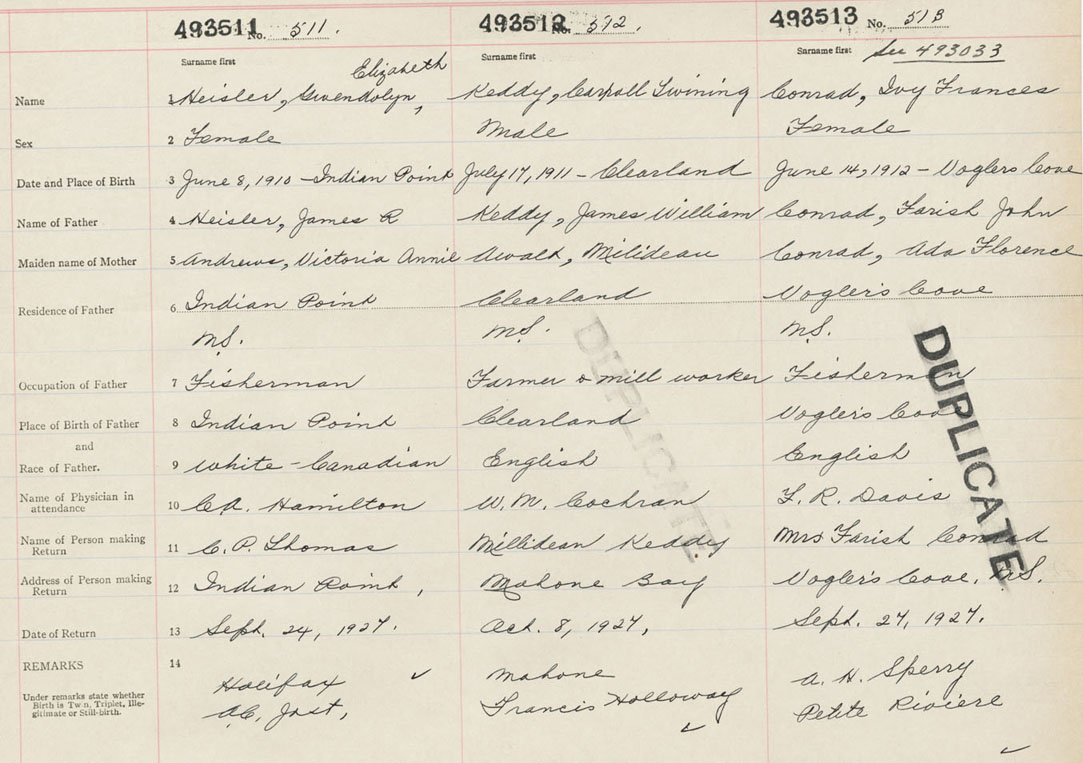 493511 No. 511. 493512 No. 512, 493513 No. 513
Surname first Surname first Surname first See 493033
Elizabeth
Name 1 Heisler, Gwendolyn, Keddy, Carroll Twining Conrad, Ivy Frances
Sex 2 Female Male Female
Date and Place of Birth 3 June 8, 1910 - Indian Point July 17, 1911 - Clearland June 14, 1912 - Voglers Cove
Name of Father 4 Heisler, James R Keddy, James William Conrad, Farish John
Maiden name of Mother 5 Andrews, Victoria Annie Awalt, Milideau Conrad, Ada Florence
Residence of Father 6 Indian Point Clearland Vogler's Cove
N.S. N.S. N.S.
Occupation of Father 7 Fisherman Farmer & mill worker Fisherman
Place of Birth of Father 8 Indian Point Clearland Vogler's Cove
and
Race of Father. 9 White - Canadian English English
Name of Physician in attendance 10 C.A. Hamilton W. M. Cochran F. R. Davis
Name of Person making Return 11 C. P. Thomas Millidean Keddy Mrs Farish Conrad
Address of Person making Return 12 Indian Point, Mahone Bay Vogler's Cove, N.S.
Date of Return 13 Sept. 24, 1927. Oct. 8, 1927, Sept. 27, 1927.
REMARKS 14 Halifax ✓ Mahone A. H. Sperry
Under remarks state whether Birth is Twin, Triplet, Illegitimate or Still-birth. A.C. Jost, Francis Holloway ✓ Petite Riviere ✓
DUPLICATE
DUPLICATE